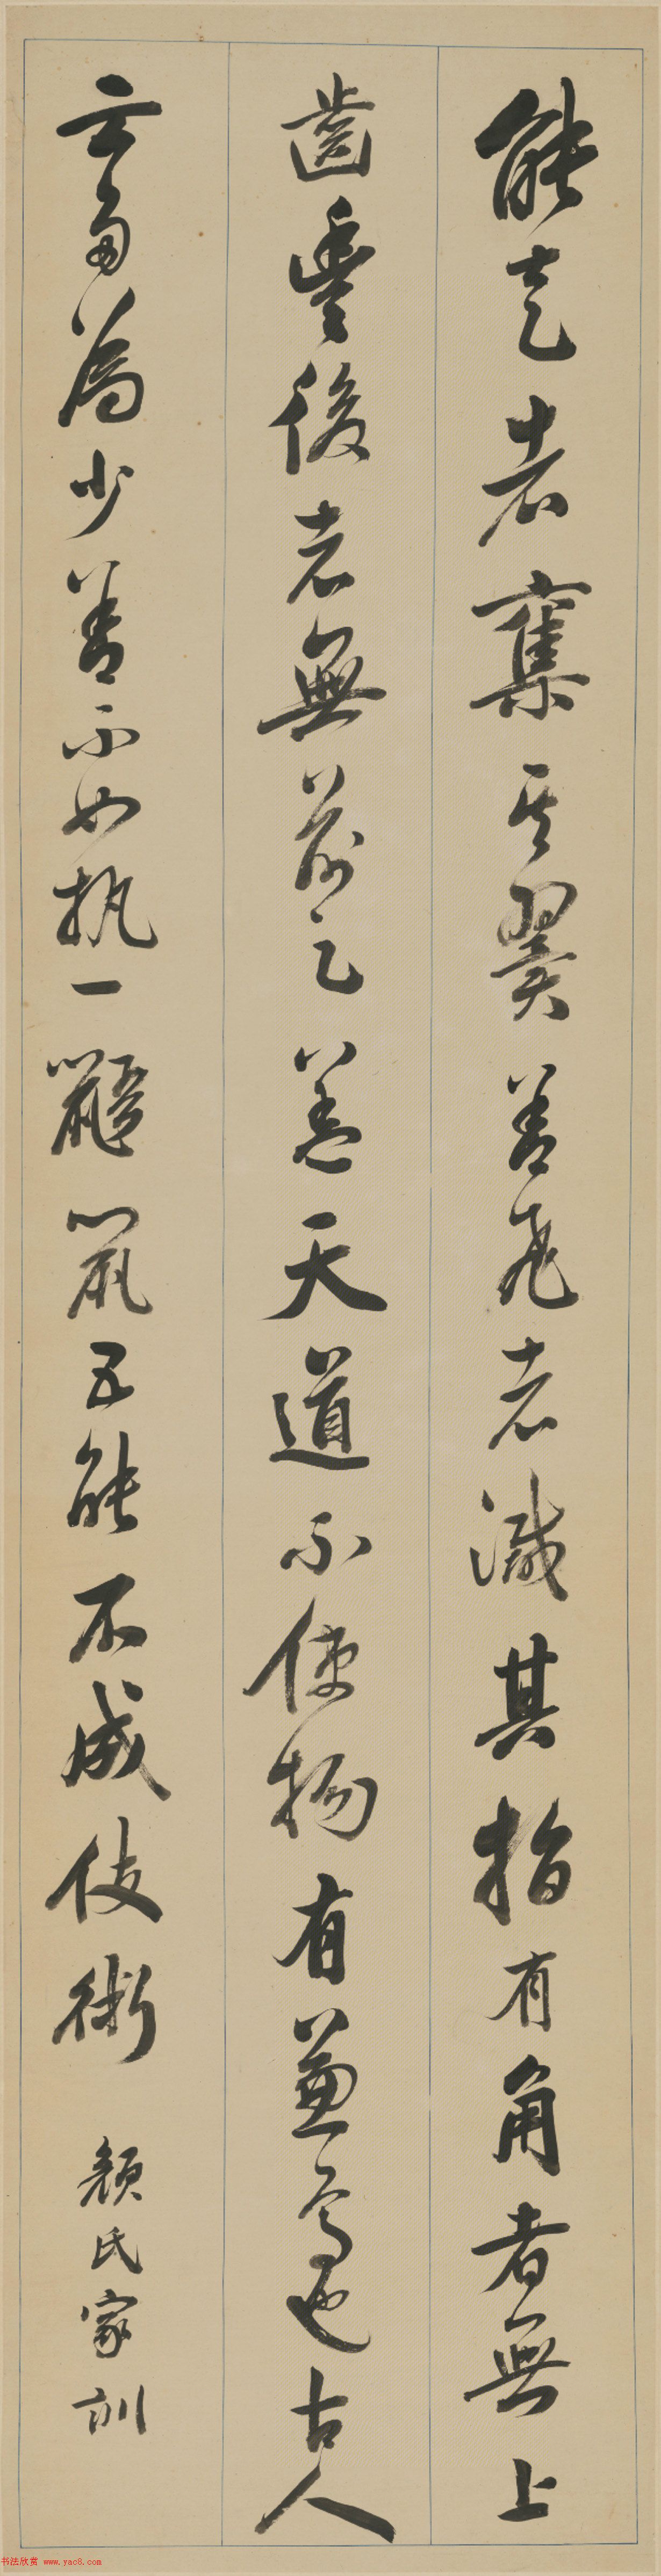 能走者奪其翼善飛者減其指有角者無上
齒豐後者無前之蓋天道不使物有兼焉也古人
云多為少善不如執一鼯鼠五能不成伎術
顏氏家訓
书法欣赏 www.yac8.com